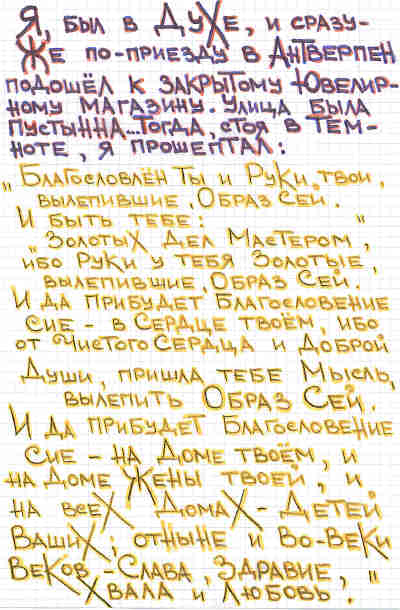 Я, был в Духе, и сразу-
же по-приезду в Антверпен
подошёл к закрытому Ювелир-
ному магазину. Улица была
пустынна... Тогда, стоя в тем-
ноте, я прошептал:
„Благословлён Ты и Руки, твои,
вылепившие, Образ Сей.
И быть тебе: "
„Золотых Дел Мастером,
ибо Руки у тебя Золотые,
вылепившие, Образ Сей.
И да прибудет Благословение
сие - в Сердце твоём, ибо
от Чистого Сердца и Доброй
Души, пришла тебе Мысль,
вылепить Образ Сей.
И да прибудет Благословение
сие - на Доме твоём, и
на Доме Жены твоей, и
на всех Домах - Детей
Ваших; отныне и Во-Веки
Веков - Слава, Здравие, "
Хвала и Любовь.